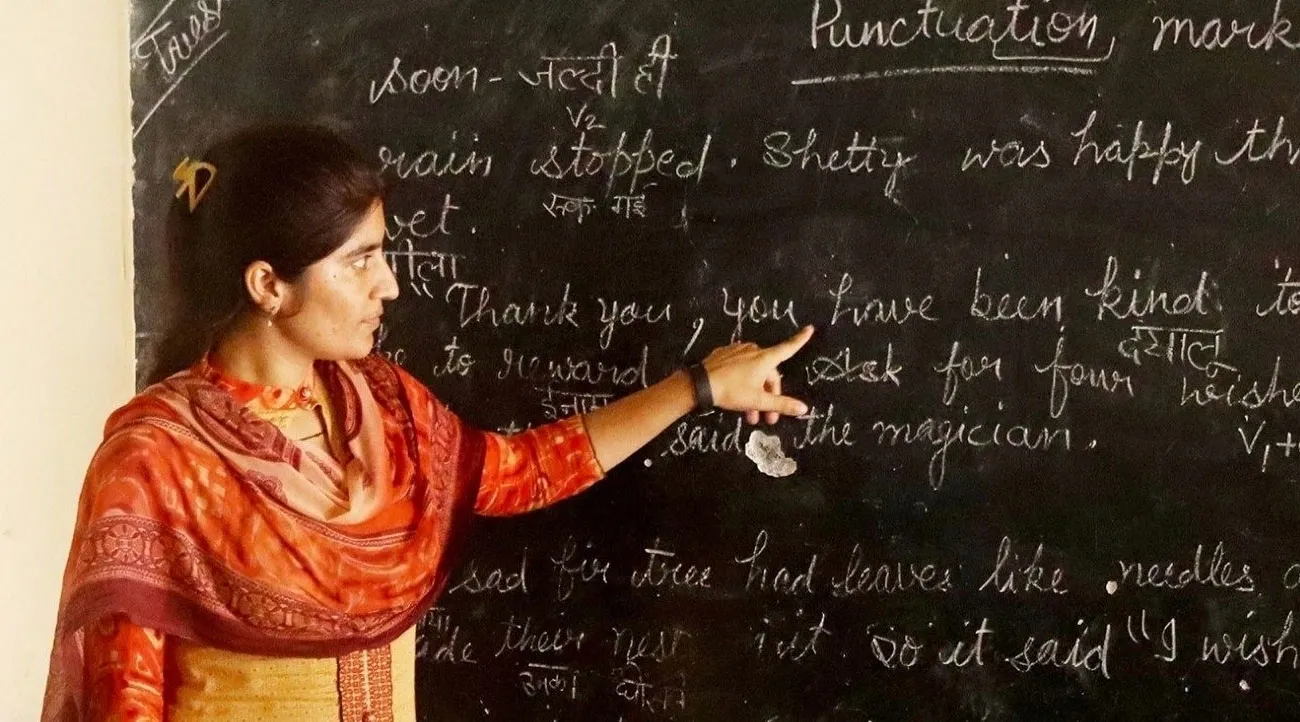 Trees
Punctuation mark
soon - जल्दी ही
V2
rain stopped. Shetty was happy
रुक गई
wet.
गीला
"Thank you, you have been kind to
दयालु
to reward Ask for four wishes
ईनाम
said the magician.
V1+
sad fir tree had leaves like needles
their nest in it. So it said "I wish
उनका